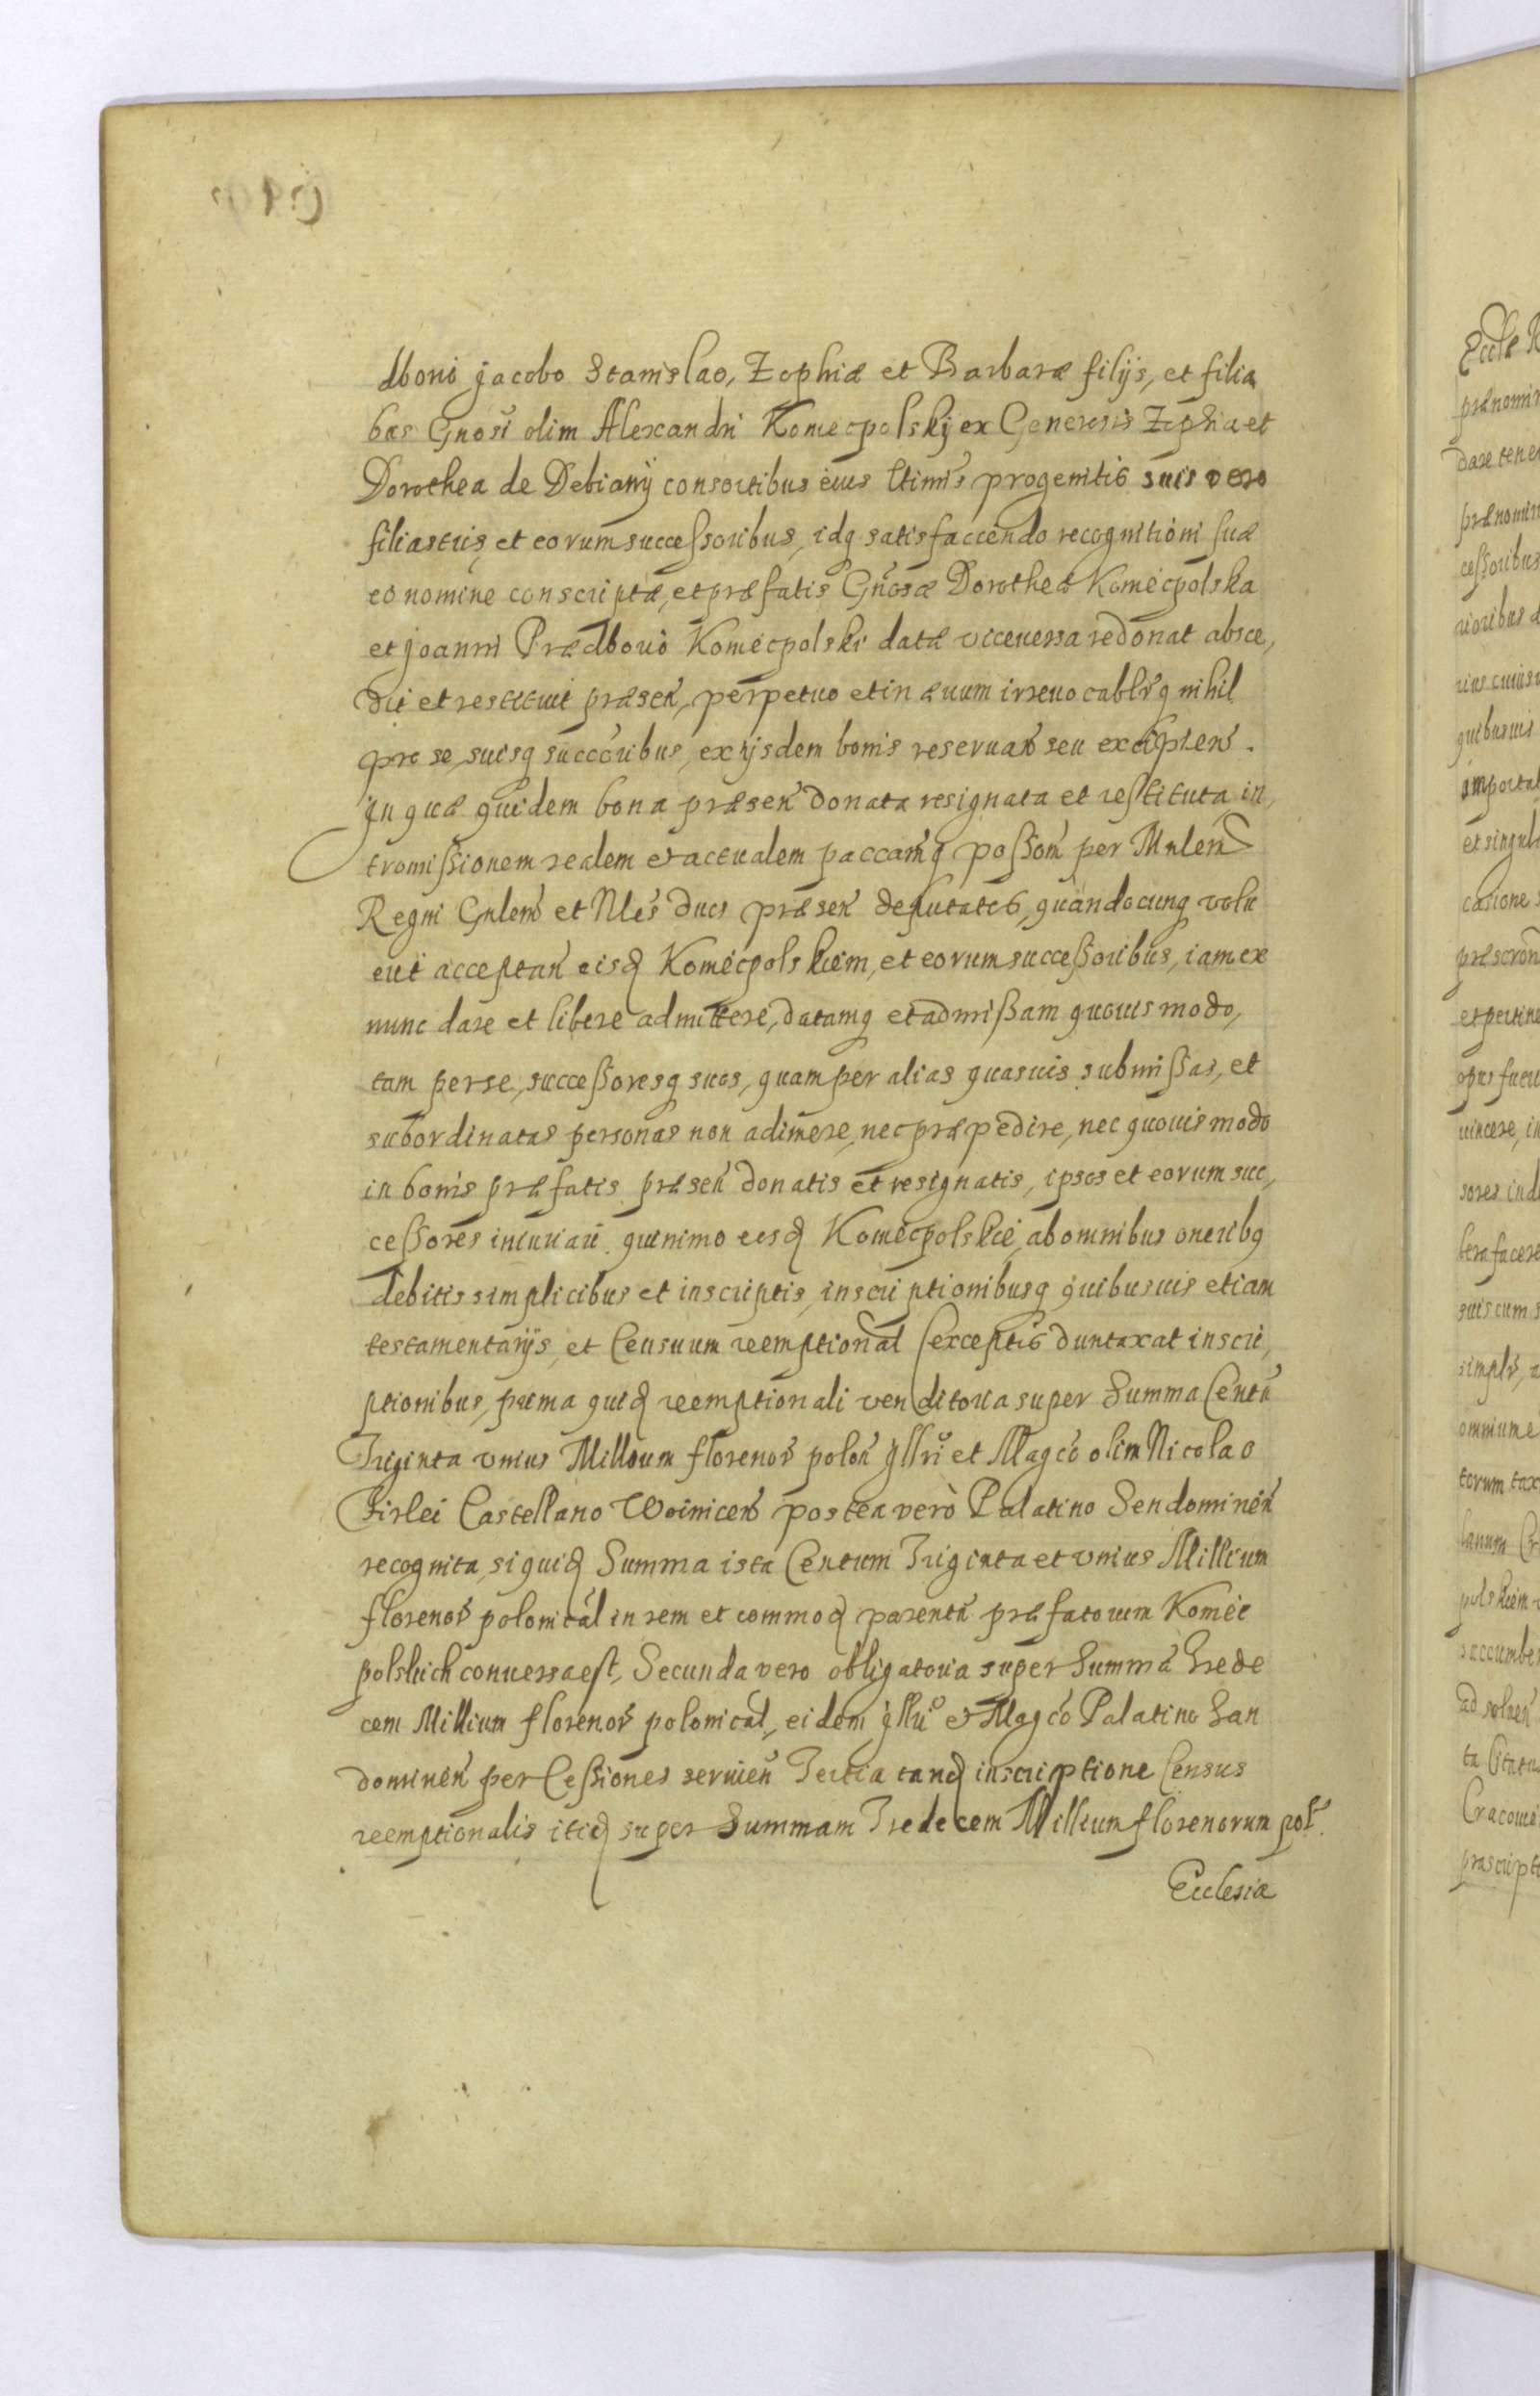 dboni Jacobo Stanislao, Zophiæ et Barbaræ filijs, et filia
bus Gnosi olim Alexandri Koniecpolskij ex Generosis Zophia et
Dorothea de Debiany consortibus eius ltimis progenitis suis vero
filiastris et eorum successoribus, idq satisfaciendo recognitioni suæ
eo nomine conscriptæ, et præfatis Gnosæ Dorotheæ Koniecpolska
et Joanni Prædbouio Koniecpolski datæ viceuersa redonat absce,
dit et restituit præsen, perpetuo et in æuum irreuocablrq nihil
pro se suisq succoribus, ex ijsdem bonis reseruan seu excipien.
In quæ quidem bona præsen donata resignata et restituta in,
tromissionem realem et actualem paccamq possom per Mnlem
Regni Gnlem et Nles duos præsen deputatos, quandocunq volu
erit acceptan eisd Koniecpolskiem, et eorum successoribus, iam ex
nunc dare et libere admittere, datamq et admissam quouis modo,
tam per se, successoresq suos, quam per alias quasuis submissas, et
subordinatas personas non adimere, nec præpedire, nec quouis modo
in bonis præfatis præsen donatis et resignatis, ipsos et eorum suc,
cessores iniuriari quinimo eosd Koniecpolskie, ab omnibus oneribq
debitis simplicibus et inscriptis, inscriptionibusq quibusuis etiam
testamentarijs, et Censuum reemptional (exceptis duntaxat inscri,
ptionibus, prima quid reemptionali venditoria super Summa Centu
Triginta vnius Millium florenor polon Jllri et Magco olim Nicolao
Firlei Castellano Woinicen postea verò Palatino Sendomirien
recognita, siquid Summa ista Centum Triginta et vnius Millium
florenor polonical in rem et commod parentu præfatorum Koniec
polskich conuersa est, Secunda vero obligatoria super Summa Trede
cem Millium florenor polonical, eidem Jllri et Magco Palatino San
domirien per Cessiones seruien Tertia tand inscriptione Census
reemptionalis itid super Summam Tredecem Millium florenorum pol.
Ecclesiæ